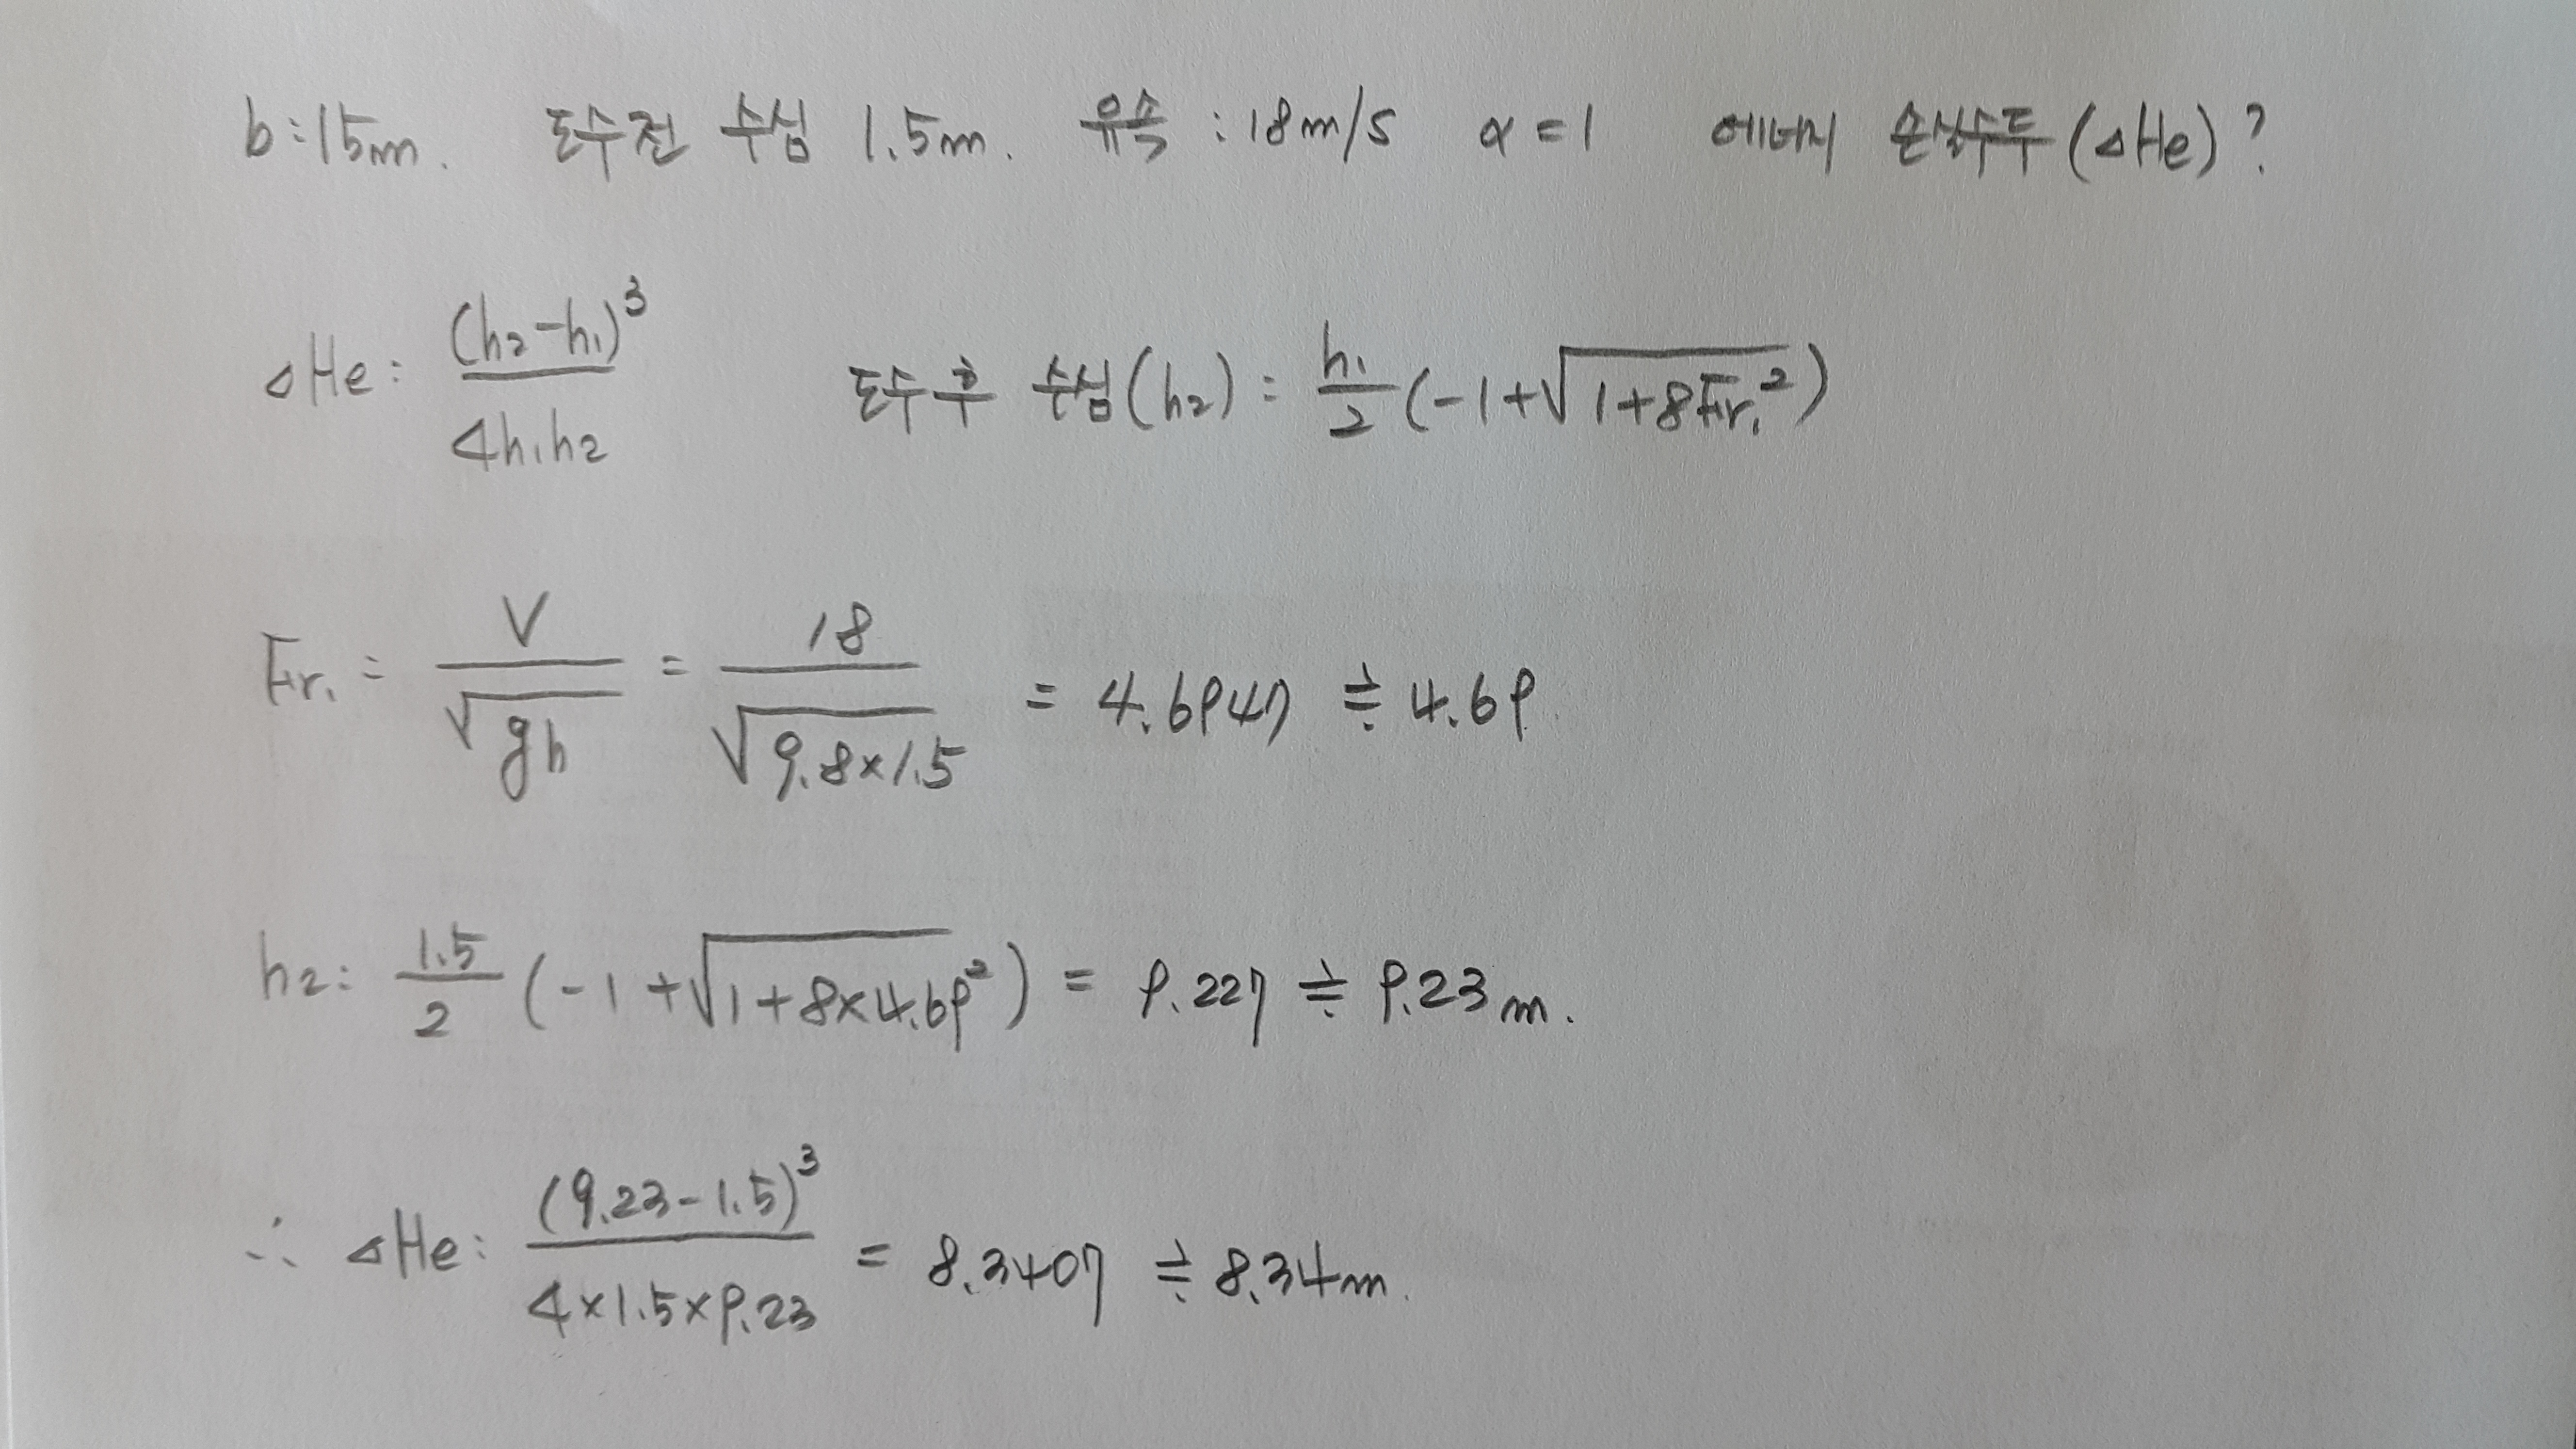 b:15m. 도수전 수심 1.5m. 유속 : 18m/s α=1 에너지 손실수두(△He)?
△He: (h₂-h₁)³/4h₁h₂ 도수 후 수심(h₂) = h₁/2(-1+√(1+8Fr₁²))
Fr₁ = V/√gh = 18/√(9.8×1.5) = 4.6947 ≒ 4.69
h₂: 1.5/2(-1+√(1+8×4.69²)) = 9.227 ≒ 9.23m.
∴ △He: (9.23-1.5)³/4×1.5×9.23 = 8.3407 ≒ 8.34m.